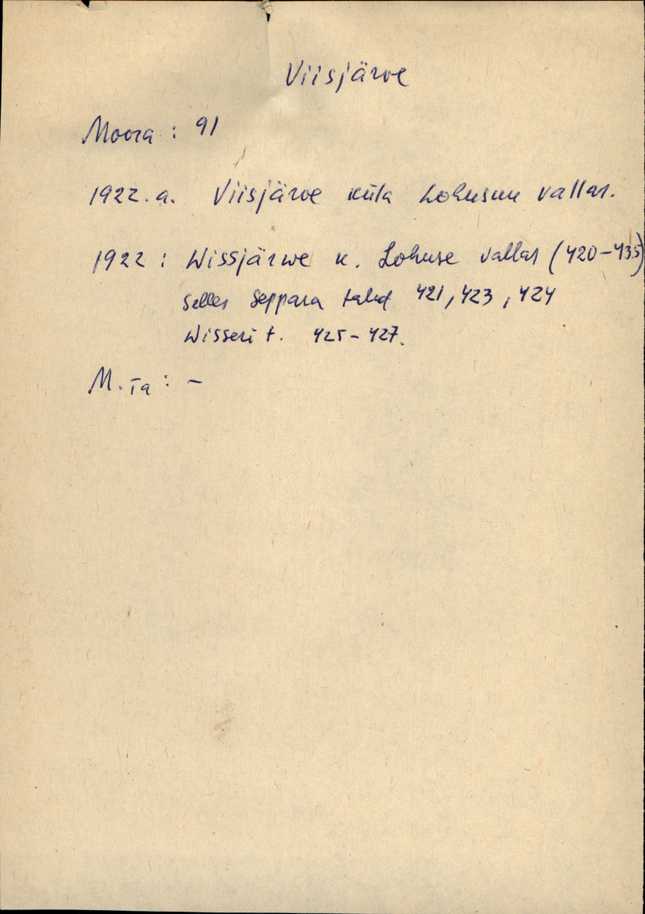 Viisjärve
Moora : 91
1922.a. Viisjärve küla Lohusuu vallas.
1922 : Wissjärwe k. Lohuse vallas (420-435)
selles Seppara talud 421, 423, 424
Wisseri t. 425-427.
M. Ta : -